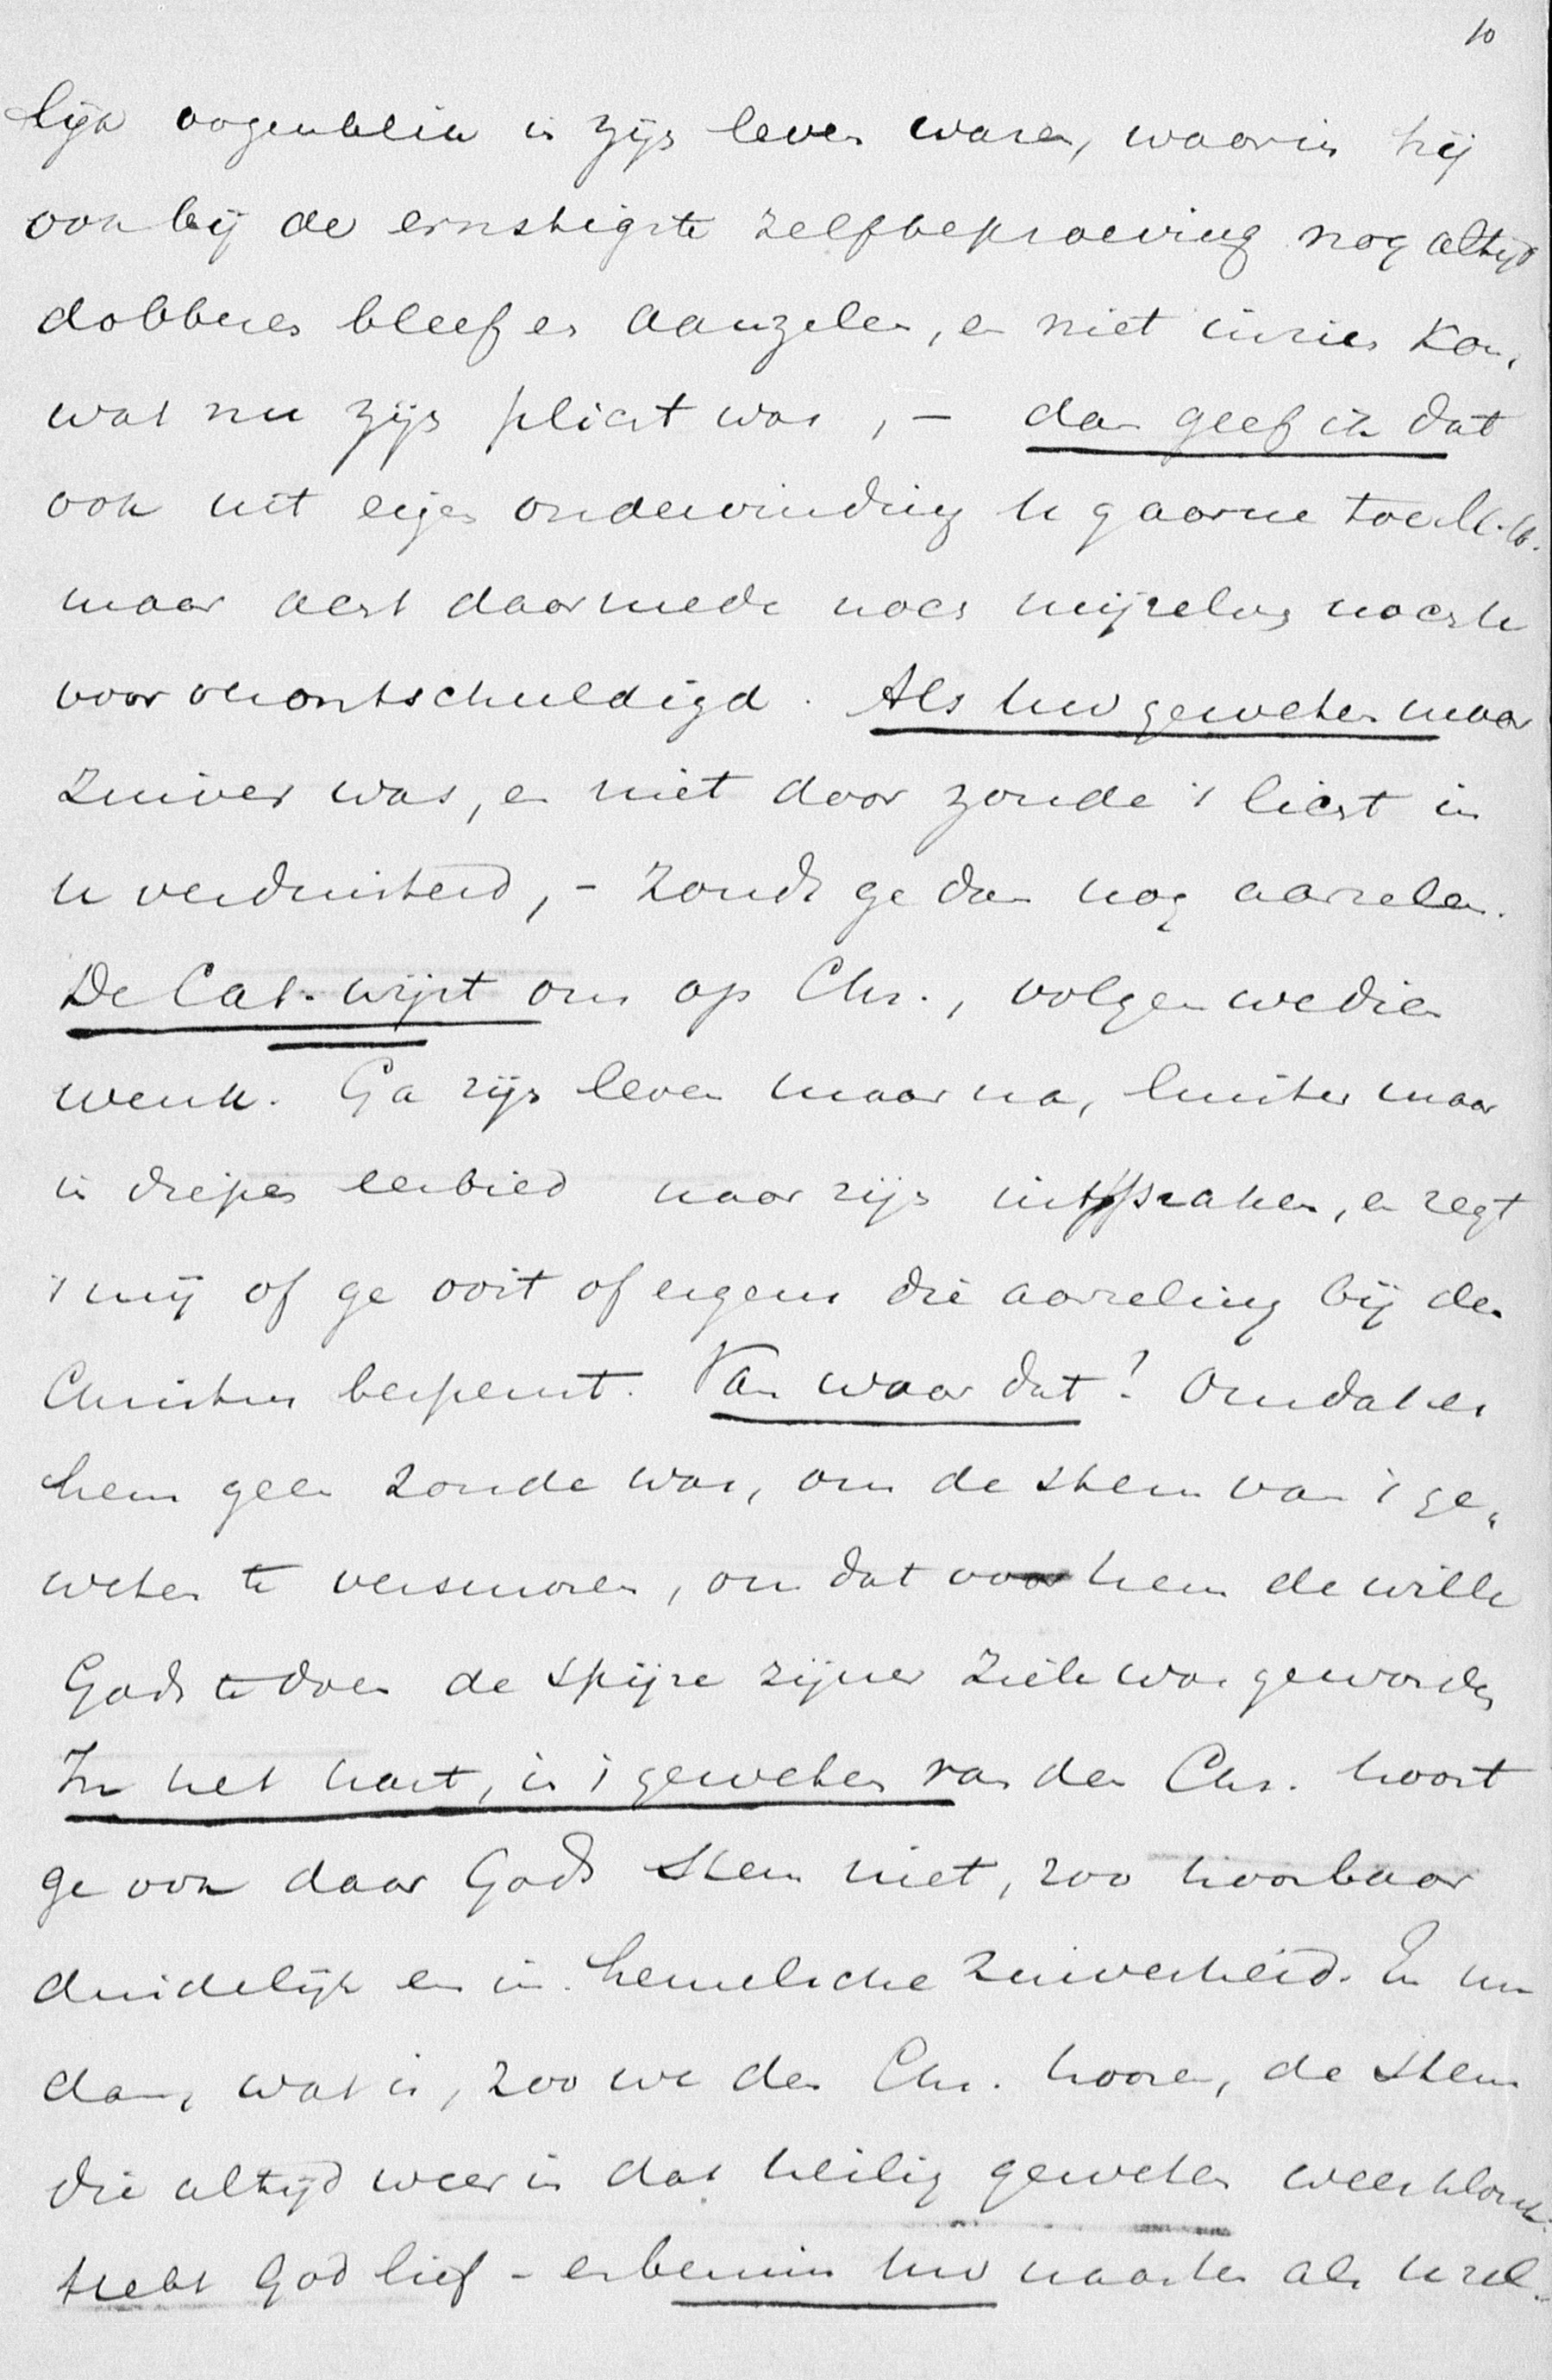 10
lijk oogenblik in zijn leven waren, waarin hij
ook bij de ernstigste zelfbeproeving nog altijd
dobberen bleef en aanzelen, en niet inzien kon,
wat nu zijn plicht was, – dan geef ik dat
ook uit eigen ondervinding u gaarne toe M.H.
maar acht daarmede noch mijzelven noch u
voor verontschuldigd. Als uw geweten maar
zuiver was, en niet door zonde 't licht in
u verduisterd, – zoudt ge dan nog aarzelen.
De Cat. wijst ons op Chr., volgen we dien
wenk. Ga zijn leven maar na, luister maar
in diepen eerbied naar zijn uitspraken, en zegt
't mij of ge ooit of ergens die aarzeling bij den
Christus bespeurt. Van waar dat? Omdat er
hem geen zonde was, om de stem van 't ge„
weten te versmoren, om dat voor hem de wille
Gods te doen de spijze zijner ziele was geworden
In het hart, in 't geweten van den Chr. hoort
ge ook daar Gods stem niet, zoo hoorbaar
duidelijk en in hemelsche zuiverheid. En nu
dan, wat is, zoo we den Chr. hooren, de stem
die altijd weer in dat heilig geweten weerklonk:
hebt God lief – en bemin uw naasten als uzel„